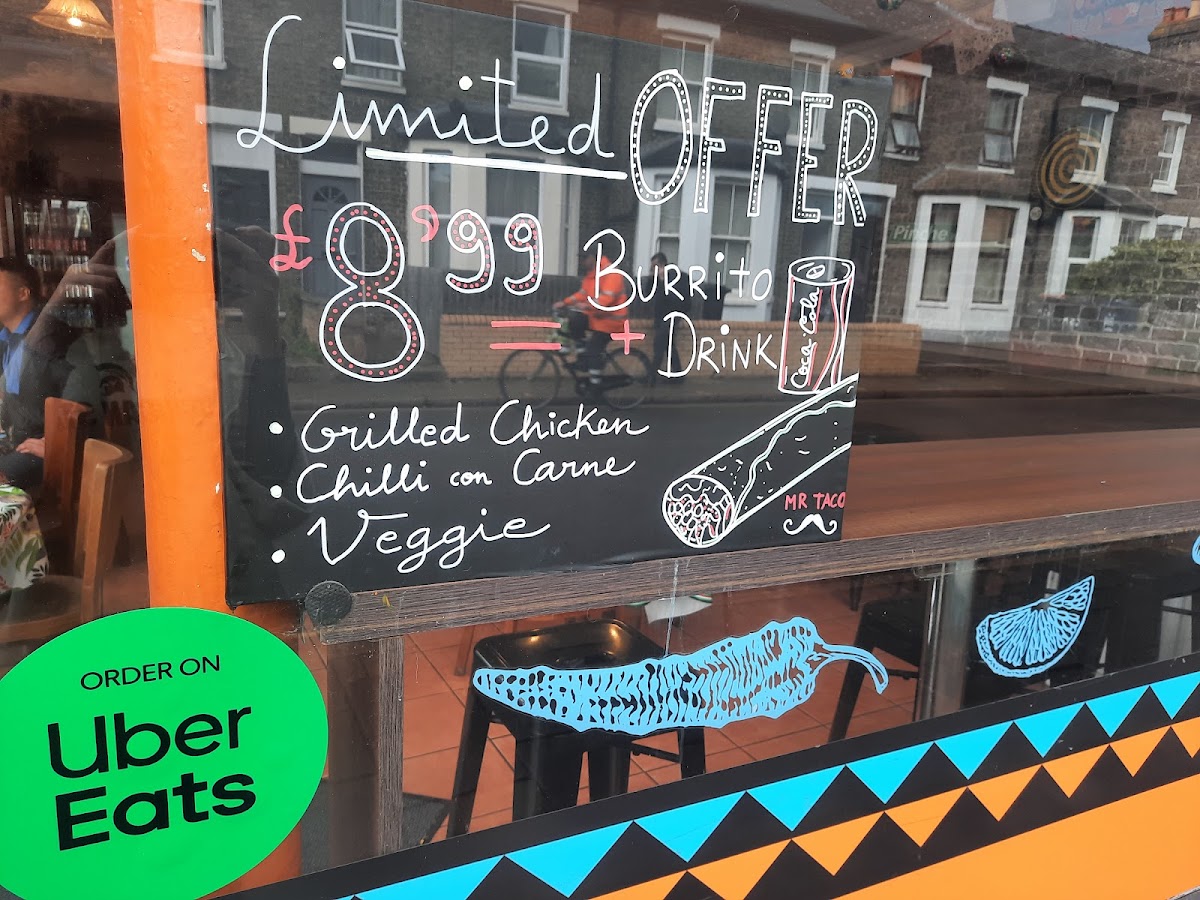 Limited OFFER
£8'99 = Burrito + Drink
Coca-Cola
• Grilled Chicken
• Chilli con Carne
• Veggie
MR TACO
ORDER ON
Uber
Eats